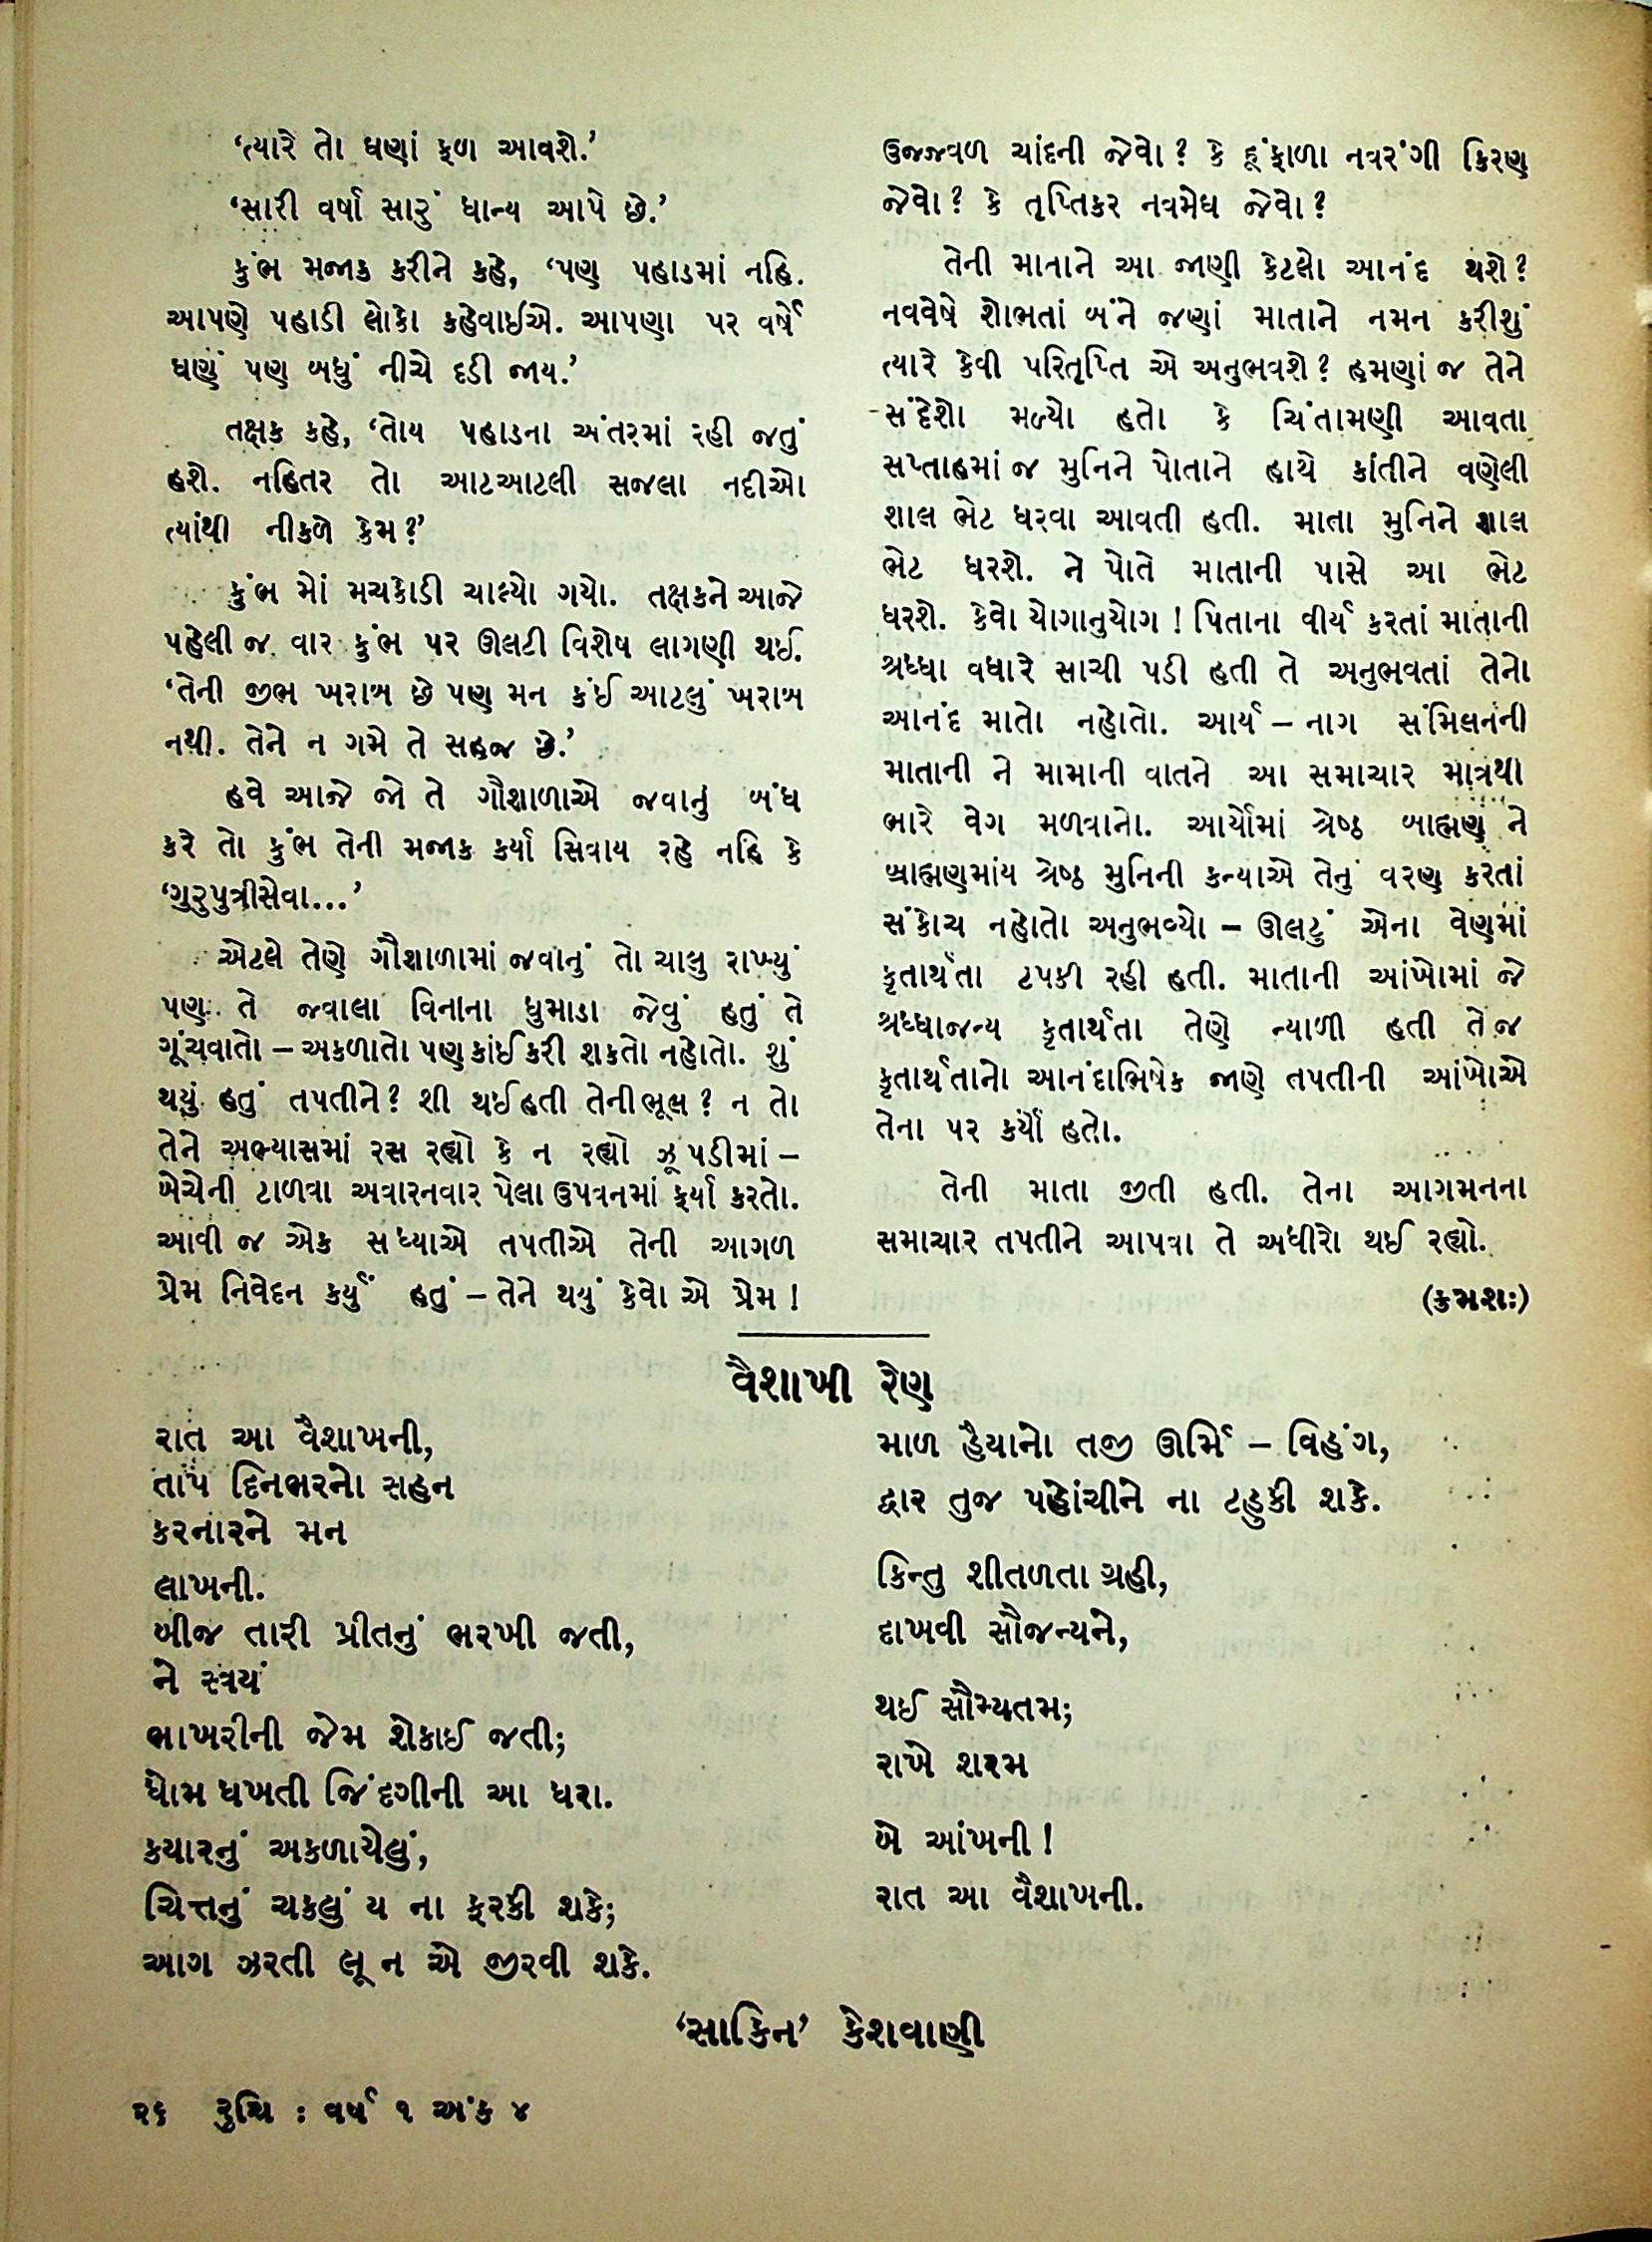 ‘ત્યારે તો ઘણાં ફળ આવશે.’
‘સારી વર્ષા સારું ધાન્ય આપે છે.’
કુંભ મજાક કરીને કહે, ‘પણ પહાડમાં નહિ.
આપણે પહાડી લોકો કહેવાઈએ. આપણા પર વર્ષે
ઘણું પણ બધું નીચે દડી જાય.’
તક્ષક કહે, ‘તોય પહાડના અંતરમાં રહી જતું
હશે. નહિતર તો આટઆટલી સજલા નદીઓ
ત્યાંથી નીકળે કેમ?’
કુંભ મોં મચકોડી ચાલ્યો ગયો. તક્ષકને આજે
પહેલી જ વાર કુંભ પર ઊલટી વિશેષ લાગણી થઈ.
‘તેની જીભ ખરાબ છે પણ મન કંઈ આટલું ખરાબ
નથી. તેને ન ગમે તે સહજ છે.’
હવે આજે જો તે ગૌશાળાએ જવાનું બંધ
કરે તો કુંભ તેની મજાક કર્યા સિવાય રહે નહિ કે
‘ગુરુપુત્રીસેવા...’
એટલે તેણે ગૌશાળામાં જવાનું તો ચાલુ રાખ્યું
પણ તે જ્વાલા વિનાના ધુમાડા જેવું હતું તે
ગૂંચવાતો – અકળાતો પણ કાંઈ કરી શકતો નહોતો. શું
થયું હતું તપતીને? શી થઈ હતી તેની ભૂલ? ન તો
તેને અભ્યાસમાં રસ રહ્યો કે ન રહ્યો ઝૂંપડીમાં –
બેચેની ટાળવા અવારનવાર પેલા ઉપવનમાં ફર્યા કરતો.
આવી જ એક સંધ્યાએ તપતીએ તેની આગળ
પ્રેમ નિવેદન કર્યું હતું – તેને થયું કેવો એ પ્રેમ!
ઉજ્જ્વળ ચાંદની જેવો? કે હૂંફાળા નવરંગી કિરણ
જેવો? કે તૃપ્તિકર નવમેઘ જેવો?
તેની માતાને આ જાણી કેટલો આનંદ થશે?
નવવેષે શોભતાં બંને જણાં માતાને નમન કરીશું
ત્યારે કેવી પરિતૃપ્તિ એ અનુભવશે? હમણાં જ તેને
સંદેશો મળ્યો હતો કે ચિંતામણી આવતા
સપ્તાહમાં જ મુનિને પોતાને હાથે કાંતીને વણેલી
શાલ ભેટ ધરવા આવતી હતી. માતા મુનિને શાલ
ભેટ ધરશે. ને પોતે માતાની પાસે આ ભેટ
ધરશે. કેવો યોગાનુયોગ! પિતાના વીર્ય કરતાં માતાની
શ્રધ્ધા વધારે સાચી પડી હતી તે અનુભવતાં તેનો
આનંદ માતો નહોતો. આર્ય – નાગ સંમિલનની
માતાની ને મામાની વાતને આ સમાચાર માત્રથી
ભારે વેગ મળવાનો. આર્યોમાં શ્રેષ્ઠ બ્રાહ્મણ ને
બ્રાહ્મણમાંય શ્રેષ્ઠ મુનિની કન્યાએ તેનું વરણ કરતાં
સંકોચ નહોતો અનુભવ્યો – ઊલટું એના વેણમાં
કૃતાર્થતા ટપકી રહી હતી. માતાની આંખોમાં જે
શ્રધ્ધાજન્ય કૃતાર્થતા તેણે ન્યાળી હતી તે જ
કૃતાર્થતાનો આનંદાભિષેક જાણે તપતીની આંખોએ
તેના પર કર્યો હતો.
તેની માતા જીતી હતી. તેના આગમનના
સમાચાર તપતીને આપવા તે અધીરો થઈ રહ્યો.
(ક્રમશઃ)
વૈશાખી રેણ
રાત આ વૈશાખની,
તાપ દિનભરનો સહન
કરનારને મન
લાખની.
બીજ તારી પ્રીતનું ભરખી જતી,
ને સ્વયં
ભાખરીની જેમ શેકાઈ જતી;
ધોમ ધખતી જિંદગીની આ ધરા.
કયારનું અકળાયેલું,
ચિત્તનું ચકલું ય ના ફરકી શકે;
આગ ઝરતી લૂ ન એ જીરવી શકે.
માળ હૈયાનો તજી ઊર્મિ – વિહંગ,
દ્વાર તુજ પહોંચીને ના ટહુકી શકે.
કિન્તુ શીતળતા ગ્રહી,
દાખવી સૌજન્યને,
થઈ સૌમ્યતમ;
રાખે શરમ
બે આંખની!
રાત આ વૈશાખની.
‘સાકિન’ કેશવાણી
૨૬ રુચિ : વર્ષ ૧ અંક ૪